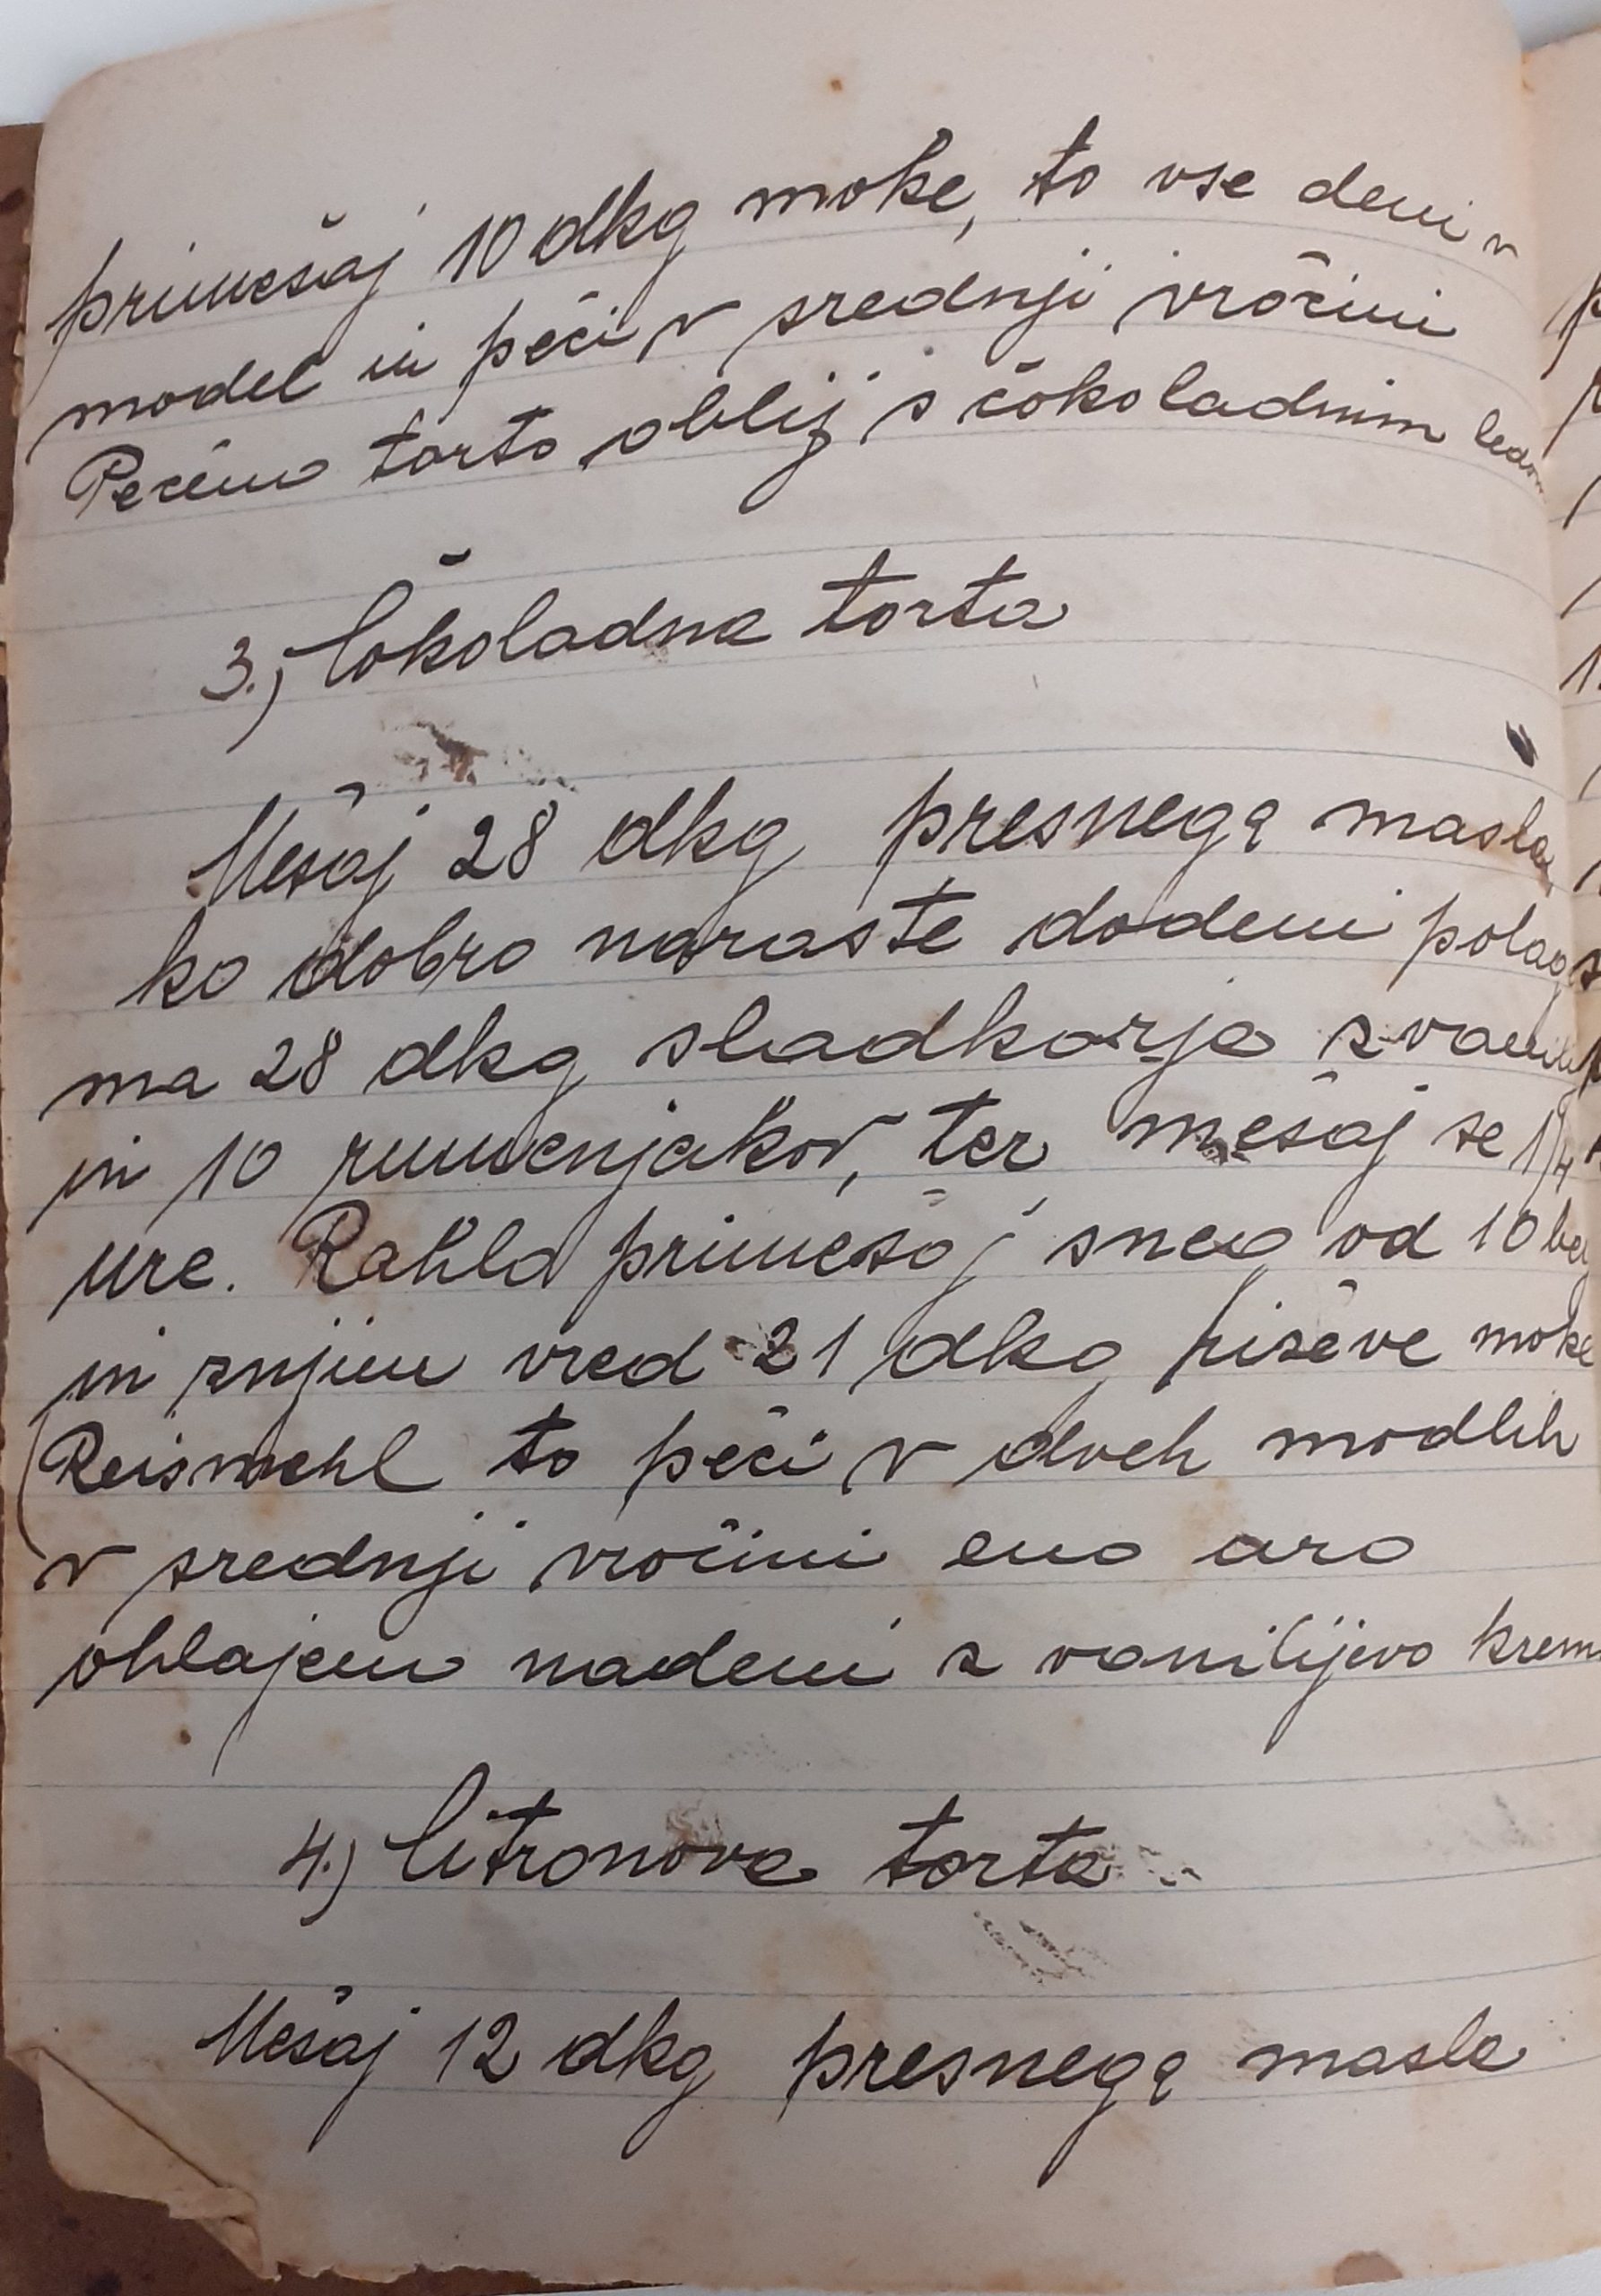 primešaj 10 dkg moke, to vse deni v
model in peči v srednji vročini
Pečeno torto oblij s čokoladnim ledom
3.) Čokoladna torta
Mešaj 28 dkg presnega masla,
ko dobro naraste dodeni polago
ma 28 dkg sladkorja z vanilij
in 10 rumenjakov, ter mešaj še 1/4
ure. Rahlo primešaj sneg od 10 bel
in znjim vred 21 dkg riževe moke
(Reismehl to peči v dveh modlih
v srednji vročini eno uro
ohlajeno nadeni z vanilijevo krem
4.) Citronova torta
Mešaj 12 dkg presnega masla